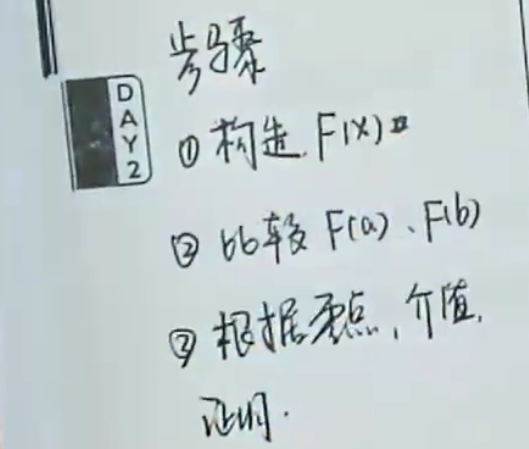 步骤
DAY2
① 构造 F(x)
② 比较 F(a)、F(b)
③ 根据零点,介值,
证明.